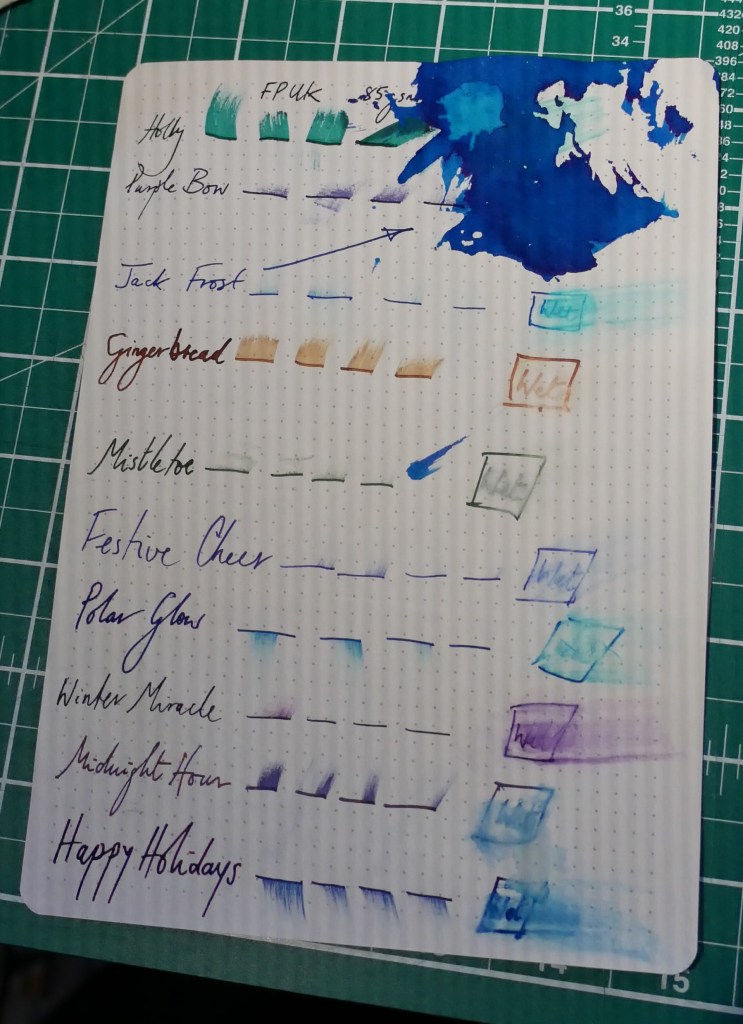 FPUK 85gsm
Holly
Purple Bow
Jack Frost Wet
Gingerbread Wet
Mistletoe Wet
Festive Cheer Wet
Polar Glow
Winter Miracle Wet
Midnight Hour Wet
Happy Holidays Wet
36
34
432
420
408
396
384
372
360
14
15